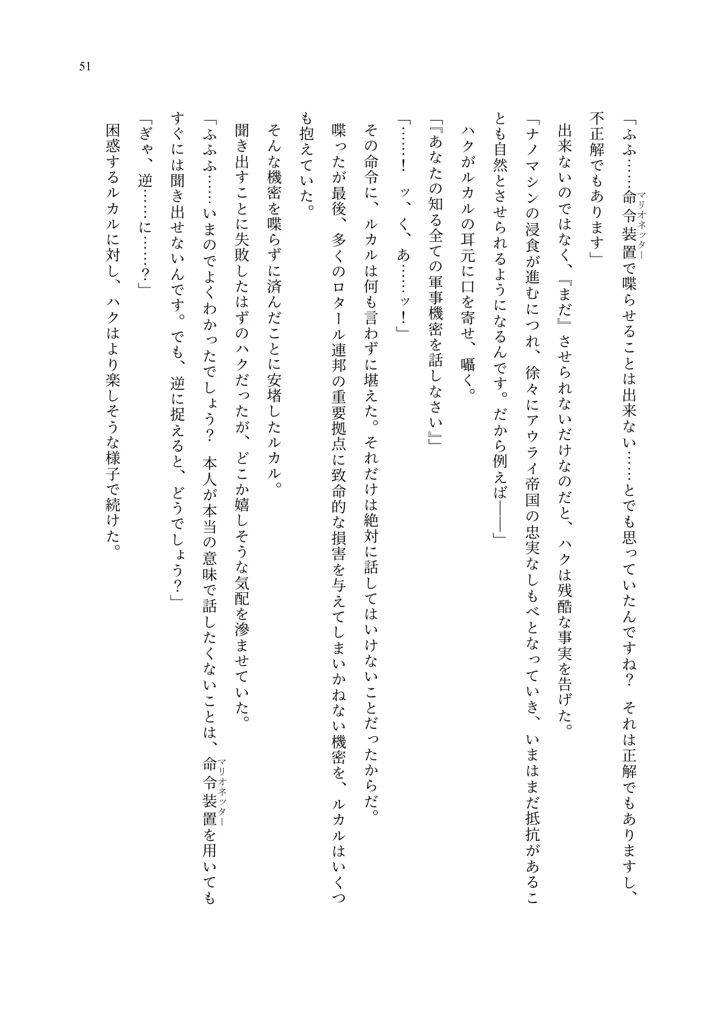 51
「ふふ……命令装置で喋らせることは出来ない……とでも思っていたんですね？　それは正解でもありますし、
マリオネッター
不正解でもあります」
出来ないのではなく、『まだ』させられないだけなのだと、ハクは残酷な事実を告げた。
「ナノマシンの浸食が進むにつれ、徐々にアウライ帝国の忠実なしもべとなっていき、いまはまだ抵抗があるこ
とも自然とさせられるようになるんです。だから例えば――」
ハクがルカルの耳元に口を寄せ、囁く。
「『あなたの知る全ての軍事機密を話しなさい』」
「……！　ッ、く、あ……ッ！」
その命令に、ルカルは何も言わずに堪えた。それだけは絶対に話してはいけないことだったからだ。
喋ったが最後、多くのロタール連邦の重要拠点に致命的な損害を与えてしまいかねない機密を、ルカルはいくつ
も抱えていた。
そんな機密を喋らずに済んだことに安堵したルカル。
聞き出すことに失敗したはずのハクだったが、どこか嬉しそうな気配を滲ませていた。
「ふふふ……いまのでよくわかったでしょう？　本人が本当の意味で話したくないことは、命令装置を用いても
マリオネッター
すぐには聞き出せないんです。でも、逆に捉えると、どうでしょう？」
「ぎゃ、逆……に……？」
困惑するルカルに対し、ハクはより楽しそうな様子で続けた。